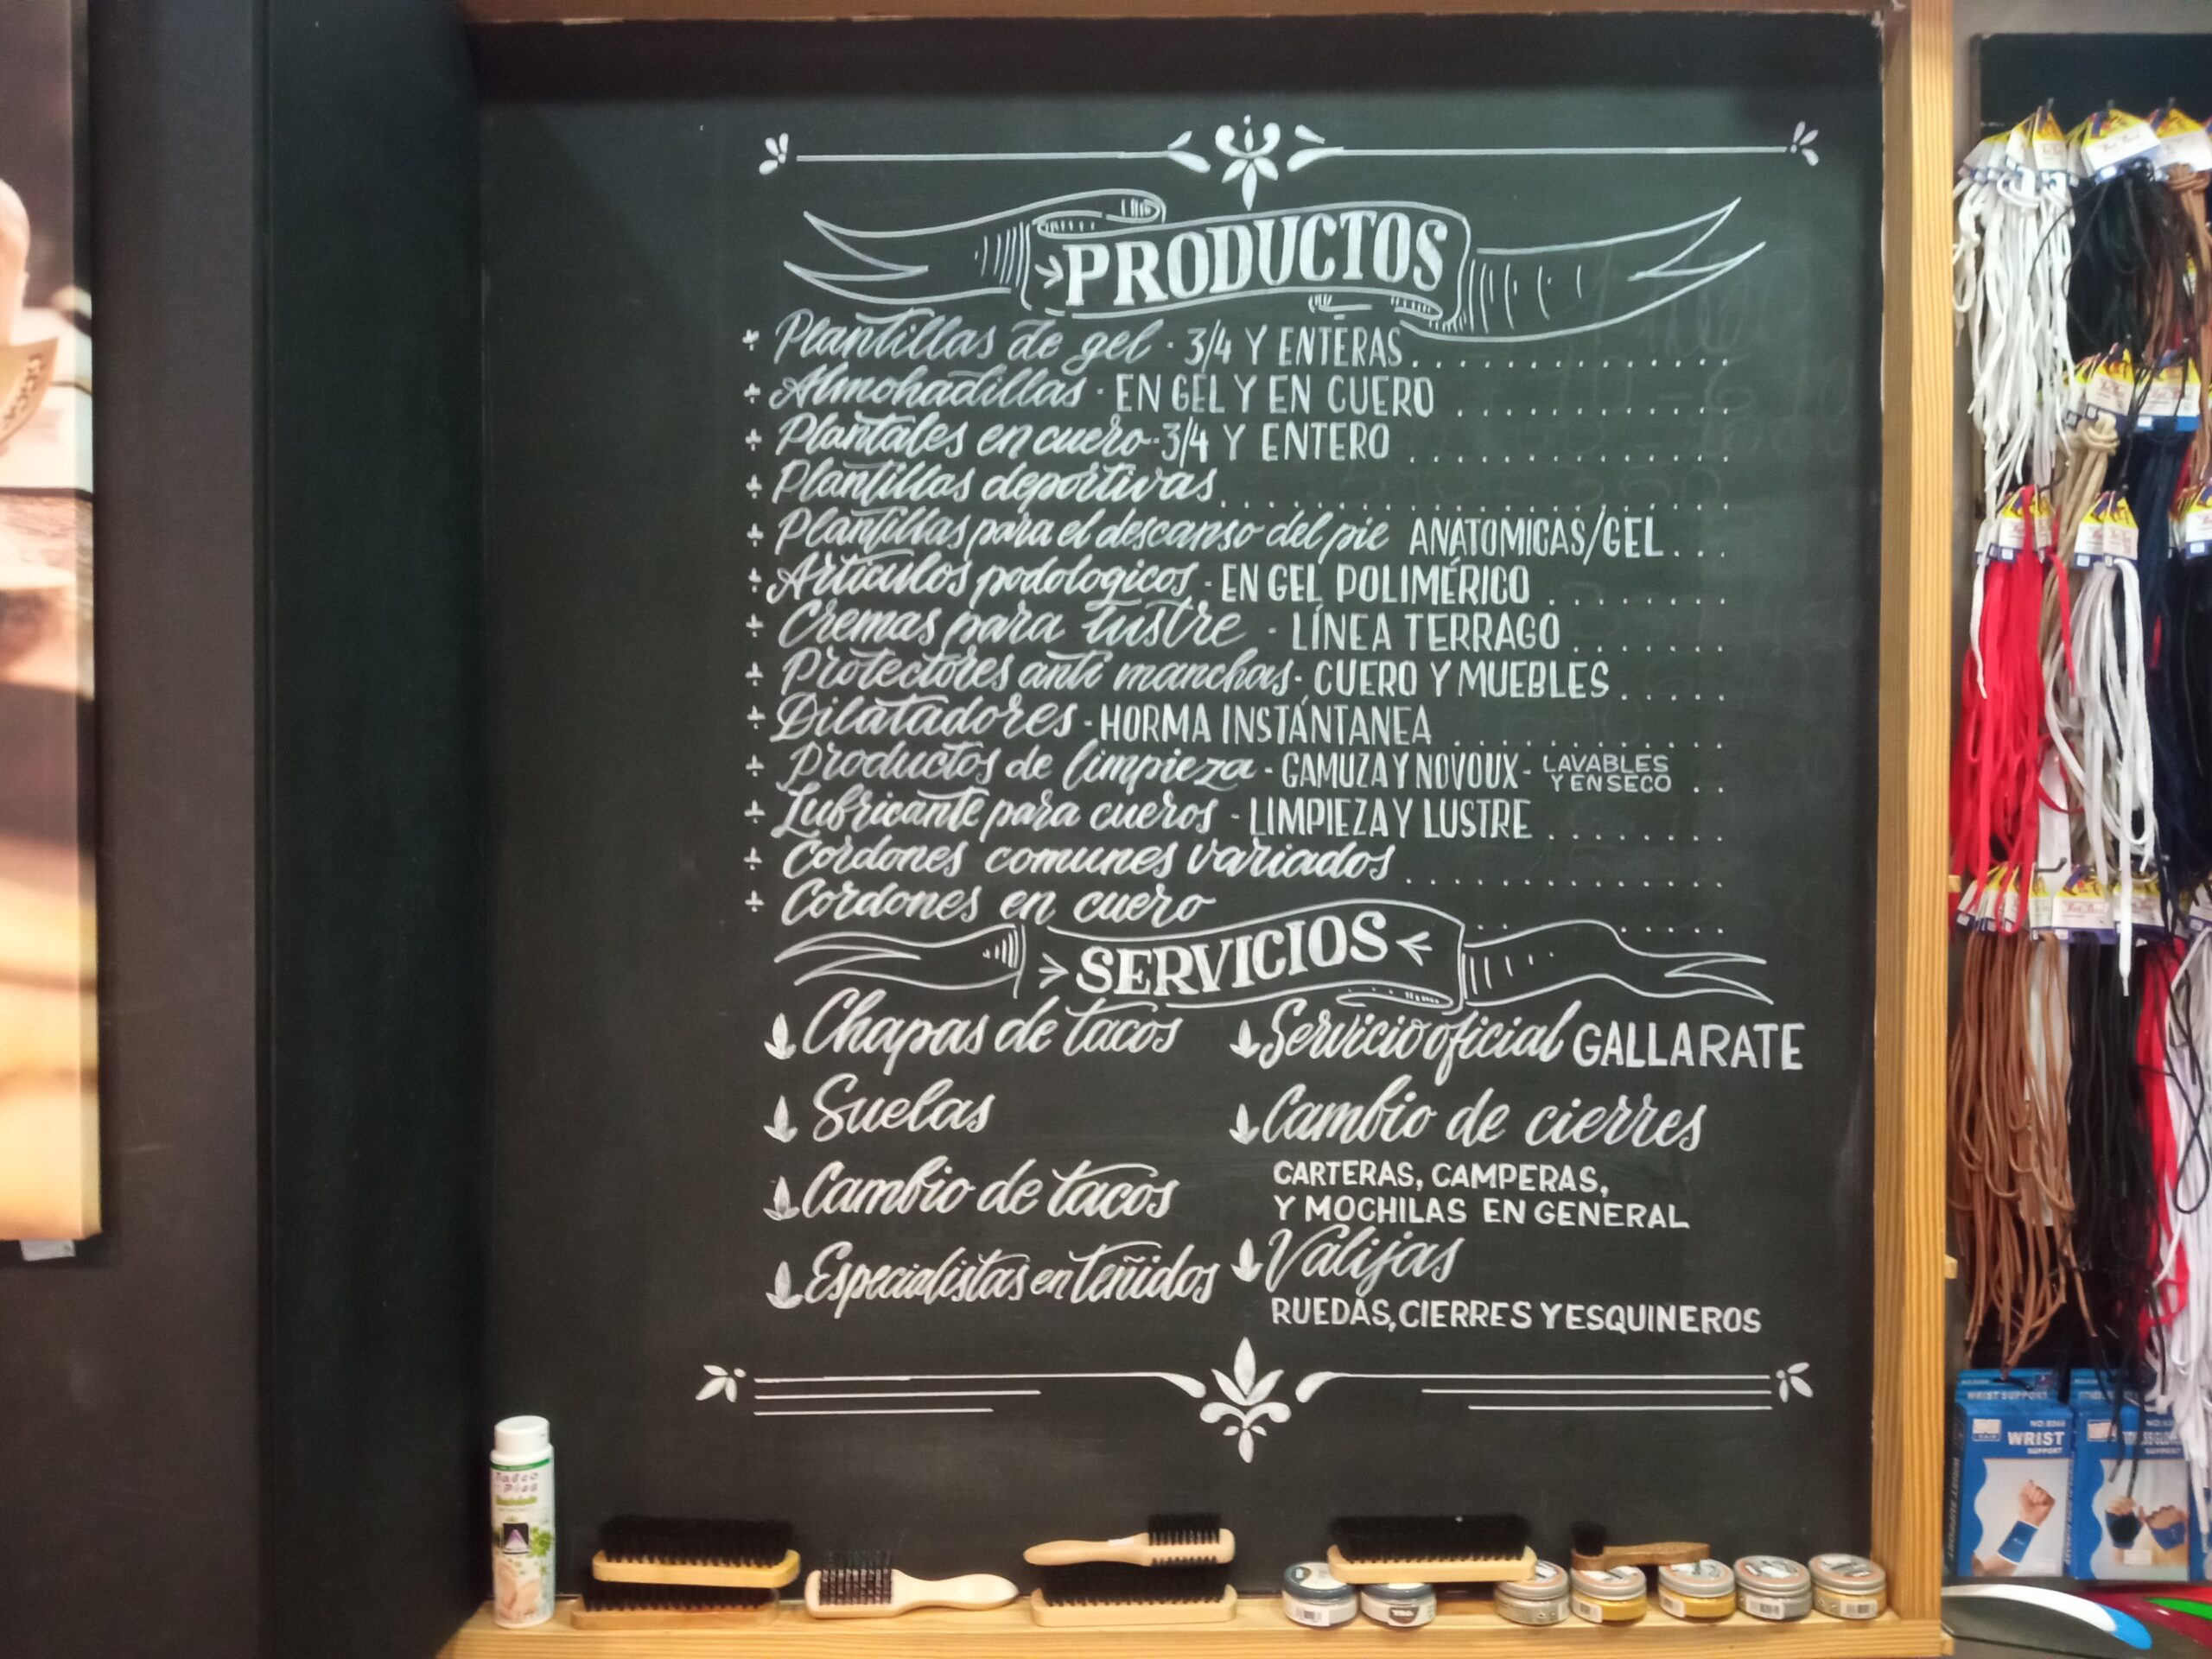 PRODUCTOS
Plantillas de gel - 3/4 Y ENTERAS
Almohadillas - EN GEL Y EN CUERO
Plantales en cuero - 3/4 Y ENTERO
Plantillas deportivas
Plantillas para el descanso del pie ANATOMICAS/GEL
Artículos podologicos - EN GEL POLIMÉRICO
Cremas para lustre - LÍNEA TERRAGO
Protectores anti manchas - CUERO Y MUEBLES
Dilatadores - HORMA INSTÁNTANEA
Productos de limpieza - GAMUZA Y NOVOUX - LAVABLES
Y EN SECO
Lubricante para cueros - LIMPIEZA Y LUSTRE
Cordones comunes variados
Cordones en cuero
SERVICIOS
Chapas de tacos
Suelas
Cambio de tacos
Especialistas en teñidos
Servicio oficial GALLARATE
Cambio de cierres
CARTERAS, CAMPERAS,
Y MOCHILAS EN GENERAL
Valijas
RUEDAS, CIERRES Y ESQUINEROS
WRIST SUPPORT
WRIST
SUPPORT